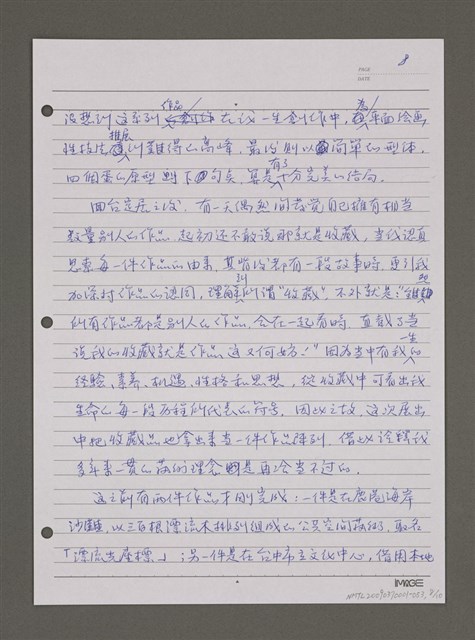 PAGE
DATE
8
作品
沒想到這系列在我一生創作中,為平面繪畫
性技法推展到難得的高峰,最後則以簡單的型体,
四個蛋的原型劃下句点,算是有了十分完美的結局。
回台定居之後,有一天偶然間發覺自己擁有相當
數量別人的作品,起初還不敢說那就是收藏,當我認真
思索每一件作品的由來,其背後都有一段故事時,更引我
加深對作品的認同,理解到所謂“收藏”,不外就是:“雖然
所有作品都是別人的,合在一起看時,直截了當
說我的收藏就是作品這又何妨!”因為當中有我一生的
經驗、素養、机遇、性格和思想,從收藏中可看出我
生命的每一段历程的代表的符号,因此之故,這次展出
中把收藏品也拿出來當一件作品陳列,借以詮釋我
多年來一貫的藝術理念則是再洽當不过的。
這之前有兩件作品才剛完成:一件是在鹿港海岸
沙灘,以三百根漂流木排列組成的公共空間藝術,取名
「漂流光座標」;另一件是在台中市立文化中心,借用本地
IMAGE
NMTL20090370001-053, 8/10